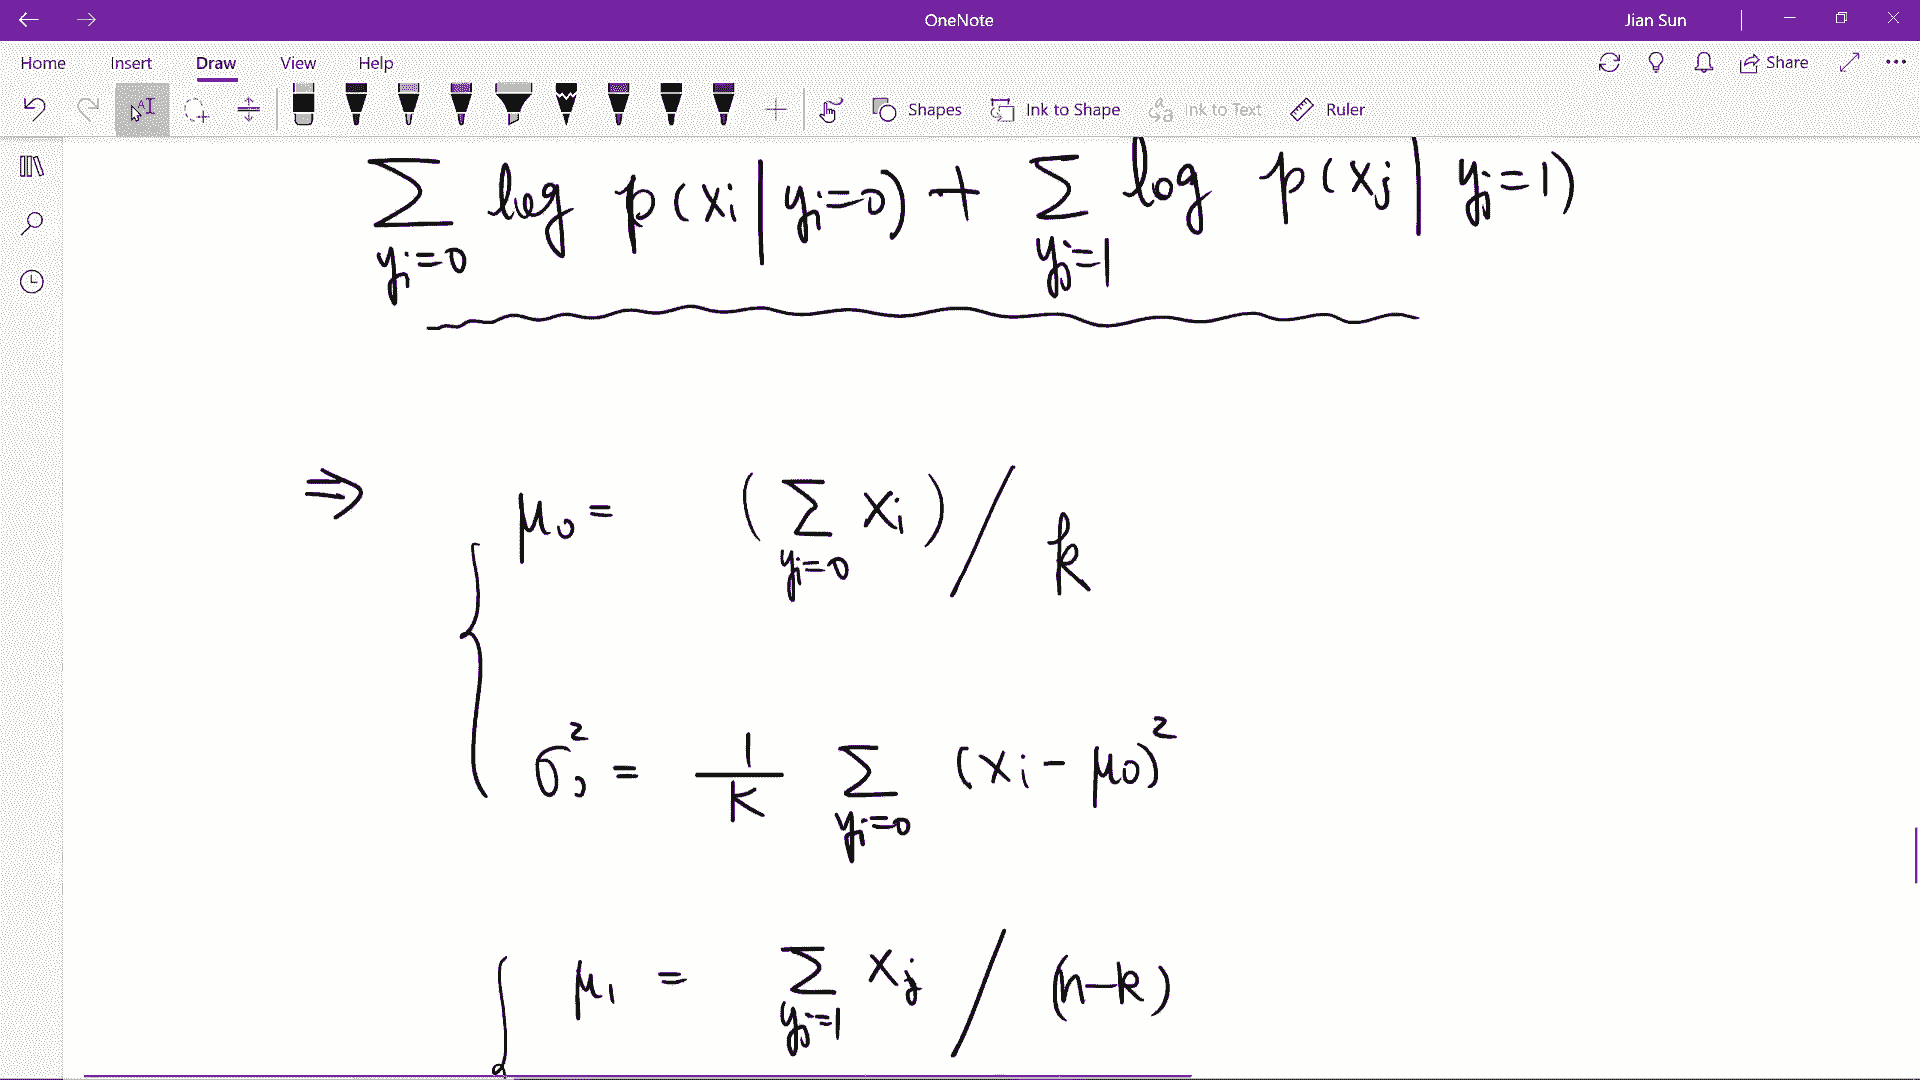 OneNote
Jian Sun
Home Insert Draw View Help Share
Shapes Ink to Shape Ink to Text Ruler
∑ log p(xi | yi=0) + ∑ log p(xj | yj=1)
yi=0 yj=1
⇒ μ0 = (∑ xi) / k
yi=0
σ0² = 1/k ∑ (xi - μ0)²
yi=0
μ1 = ∑ xj / (n-k)
yj=1